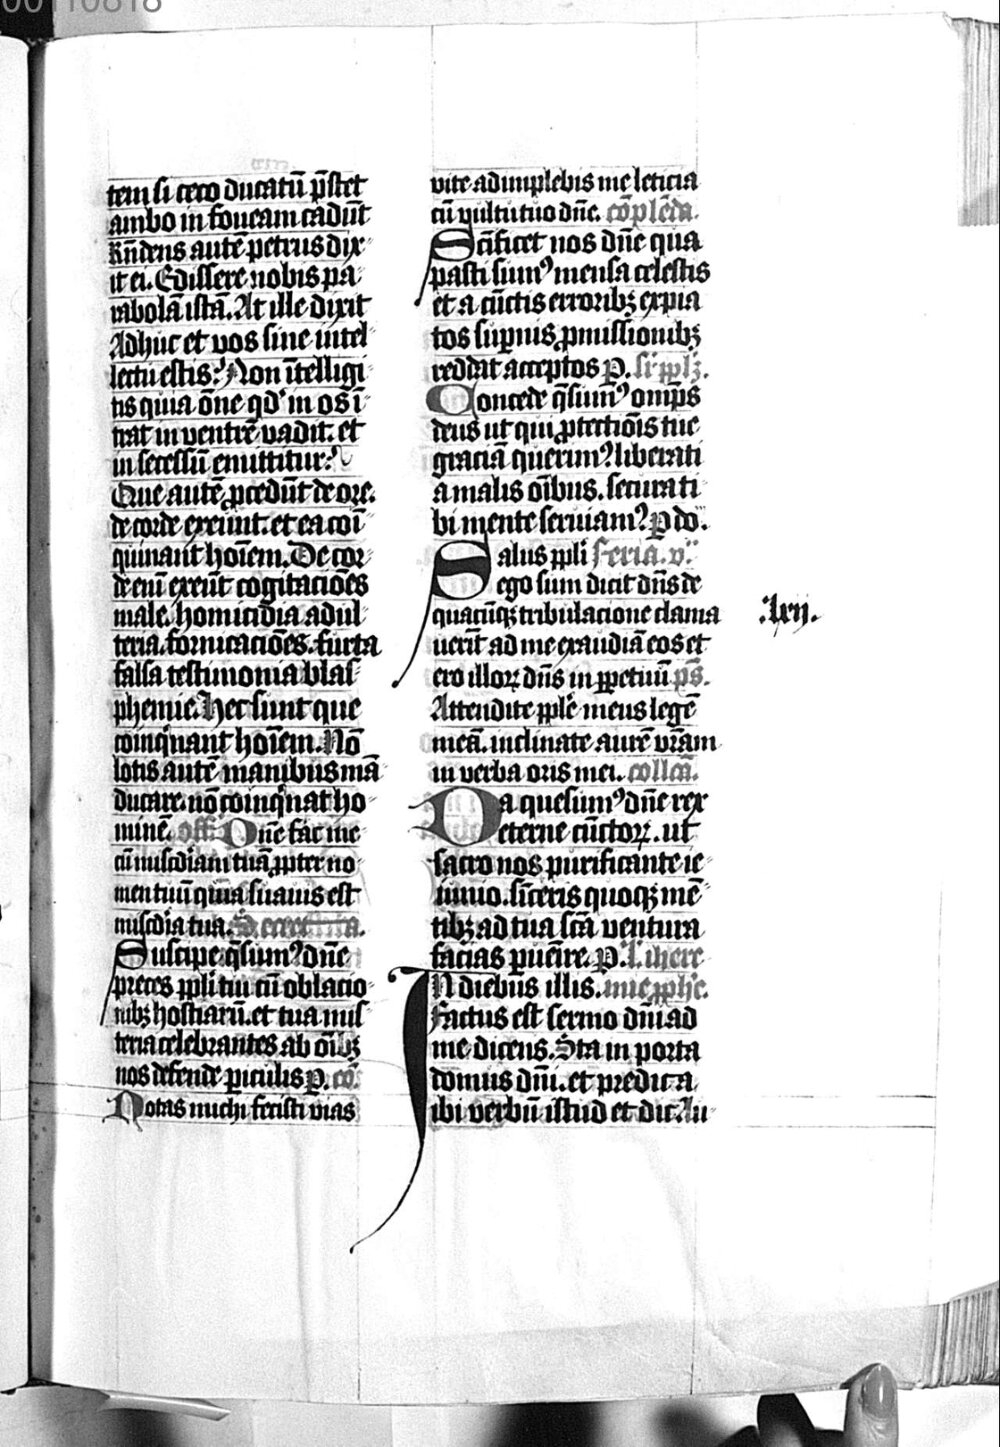 tem si ceco ducatū p̄stet
ambo in foueam cadūt
Rn̄dens autē petrus dix
it ei. Edissere nobis pa
rabolā istā. At ille dixit
Adhuc et vos sine intel
lectu estis? Non ītelligi
tis quia ōne qd' in os ī
trat in ventrē vadit. et
in secessū emittitur?
Que autē ꝓcedūt de ore.
de corde exeunt. et ea coī
quinant hoīem. De cor
de enī exeūt cogitaciōes
male. homicidia adul
teria. fornicaciōes. furta
falsa testimonia blas
phemie. Hec sunt que
coinqⁱnant hoīem. Nō
lotis autē manibus mā
ducare. nō coinqⁱnat ho
minē. off. Dn̄e fac me
cū miscd̄iam tuā ꝓpter no
men tuū quia suauis est
miscd̄ia tua. Secretina.
Suscipe q̄sumꝰ dn̄e
preces ppl̄i tui cū oblacio
nibꝫ hostiarū. et tua mis
teria celebrantes ab oībꝫ
nos defende ꝑiculis P. cō.
Notas michi fecisti vias
vite adimplebis me leticia
cū vultu tuo dn̄e. cōplēda.
Sc̄ificet nos dn̄e qua
pasti sumꝰ mensa celestis
et a cūctis erroribꝫ expia
tos suꝑnis ꝓmissionibꝫ
reddat acceptos P. sꝫ pplꝫ.
Concede q̄sumꝰ omp̄s
deus ut qui ꝓtectiōis tue
graciā querimꝰ liberati
a malis oībus. secura ti
bi mente seruiamꝰ P do.
Salus ppl̄i feria. v.
ego sum dicit dn̄s de
quacūqꝫ tribulacione clama
uerīt ad me exaudiā eos et
ero illoꝝ dn̄s in ꝑpetuū ps̄.
Attendite pplē meus legē
meā. inclinate aurē vr̄am
in verba oris mei. collcā.
Da quesumꝰ dn̄e rex
eterne cūctoꝝ. ut
sacro nos purificante ie
iunio. sīceris quoqꝫ mē
tibꝫ ad tua scā ventura
facias ꝑuenire. P. l. ihere
In diebus illis. mie ꝓph̄e.
Factus est sermo dn̄i ad
me dicens. Sta in porta
domus dn̄i. et predica
ibi verbū istud et dic. Au
.lxij.